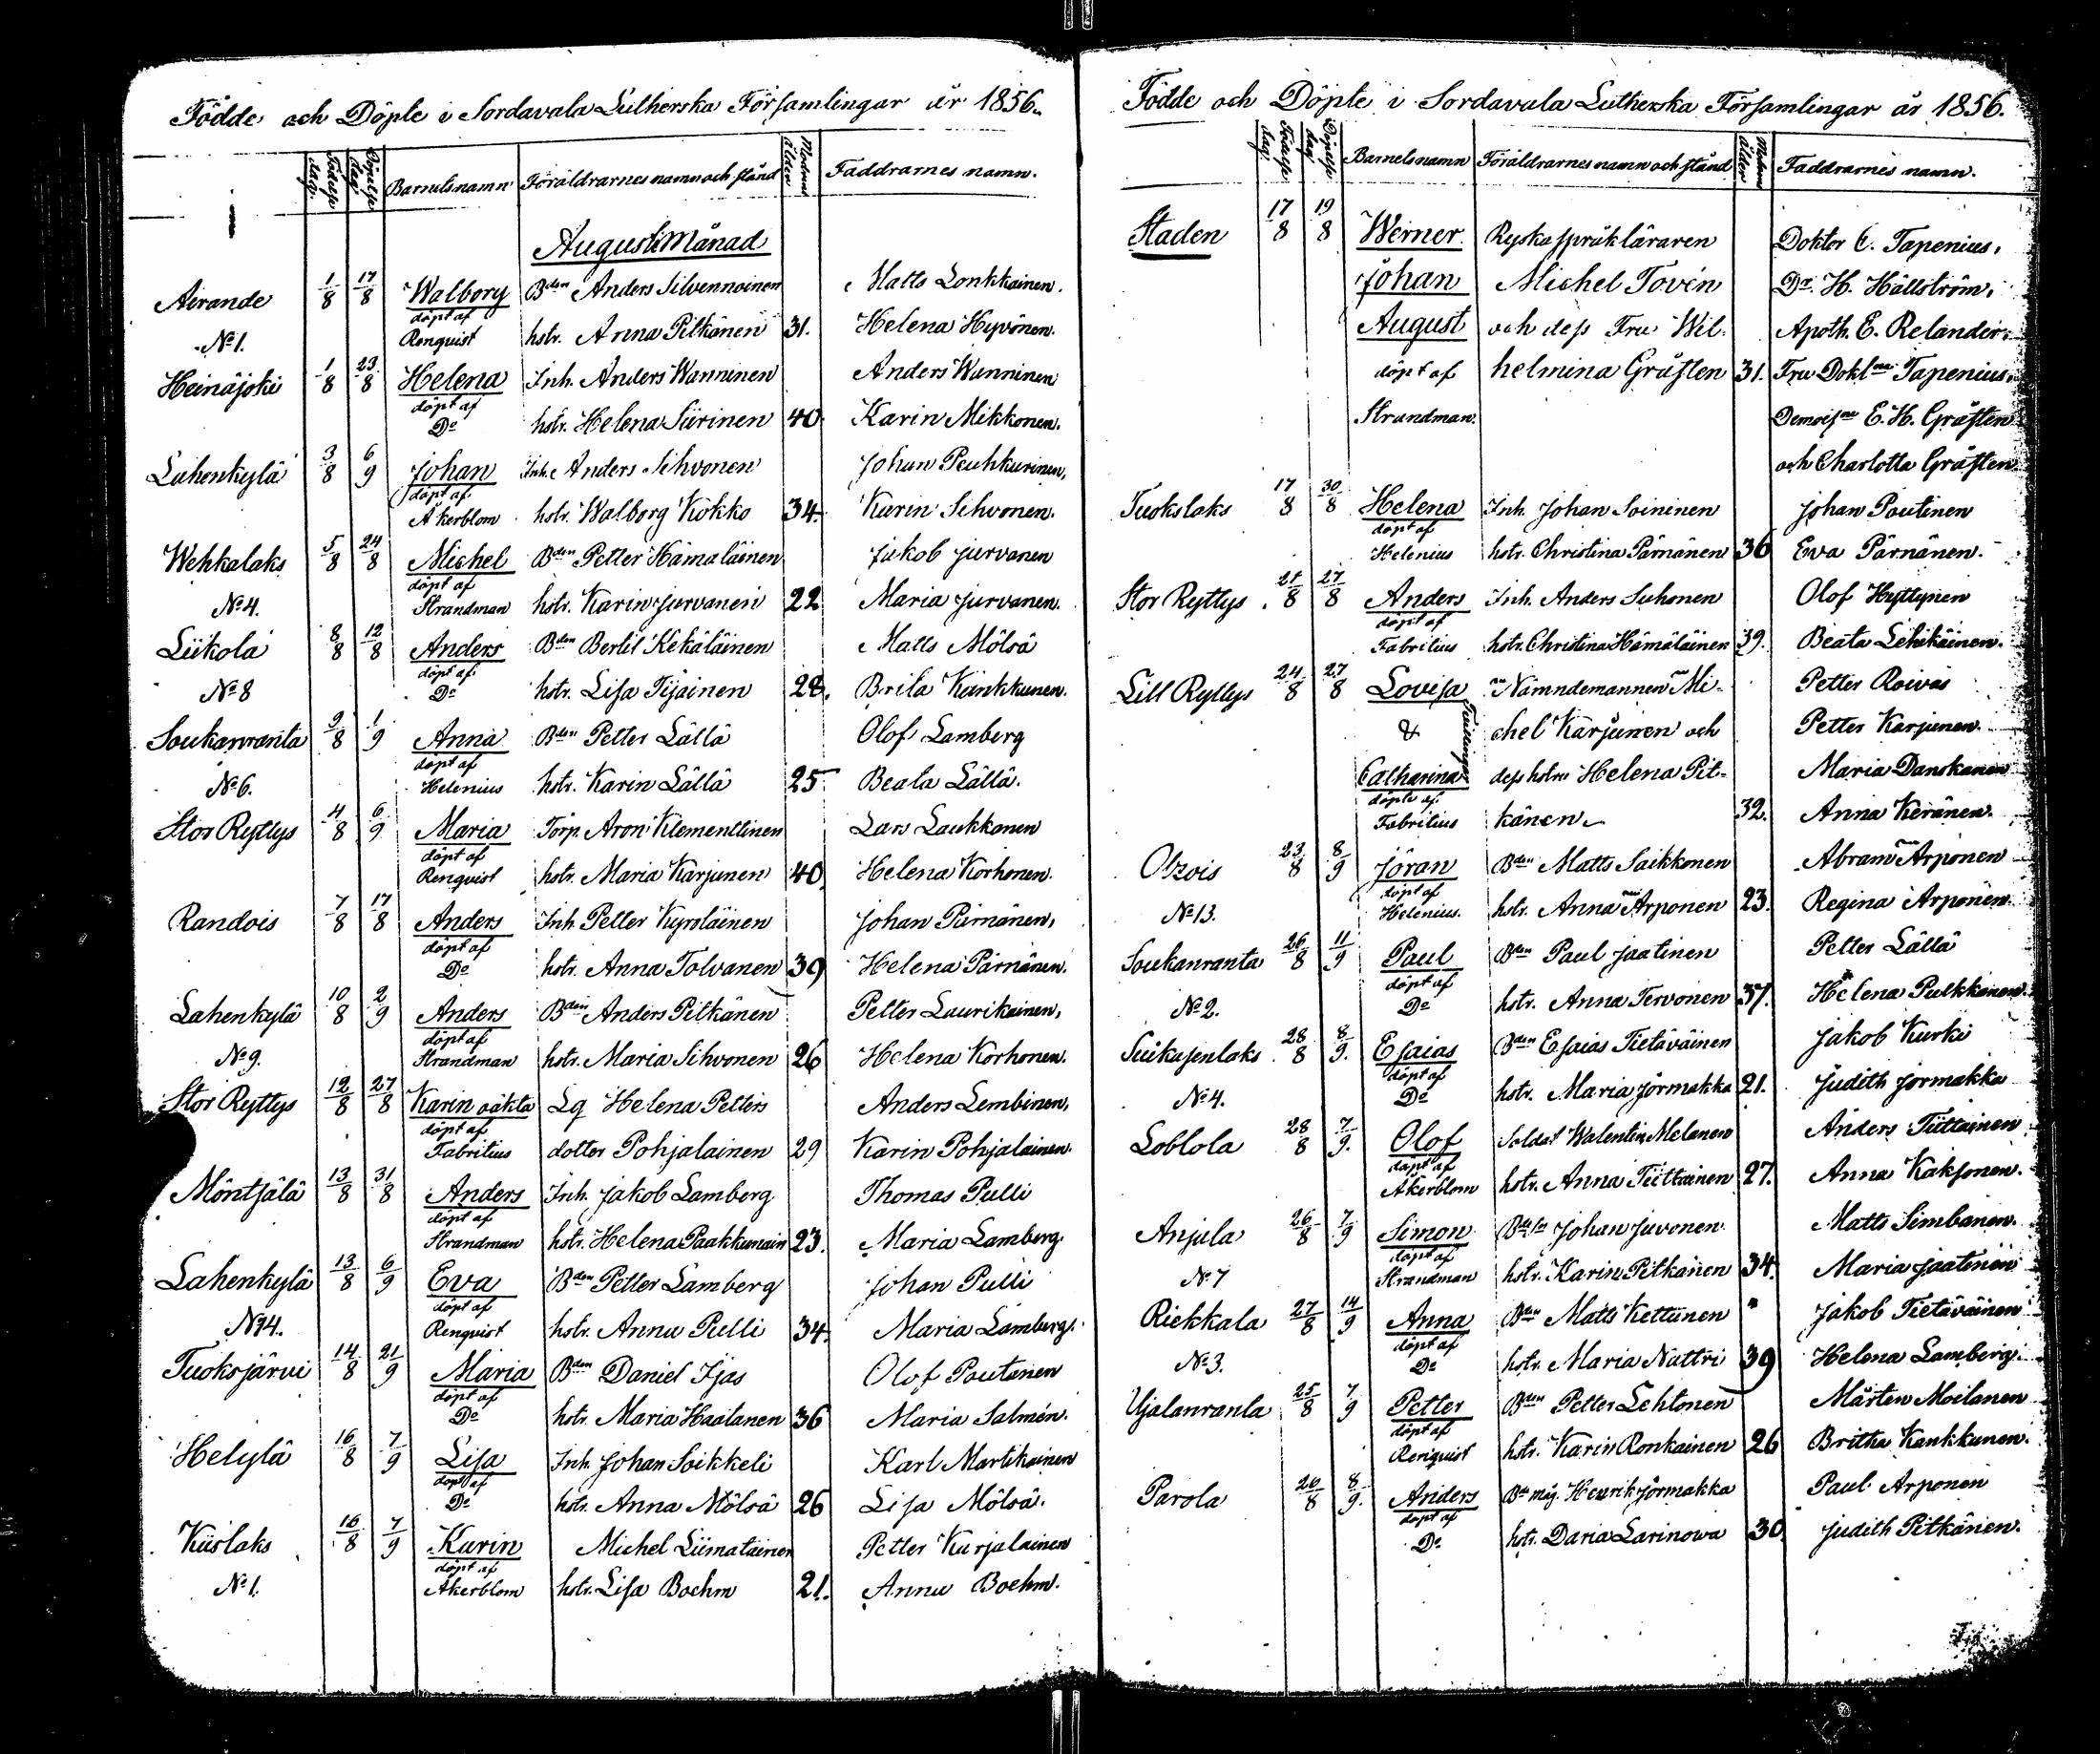 Födde och Döpte i Sordavala Lutherska Församlingar år 1856.
Födelse dag. Döpelse dag. Barnetsnamn Föräldrarnes namn och stånd Modrens ålder Faddrarnes namn.
Augusti Månad
Airande 1/8 17/8 Walborg Bden Anders Silvennoinen Matts Lonkkainen.
No 1. döpt af Renquist hstr. Anna Pitkänen 31. Helena Hyvönen.
Heinäjoki 1/8 23/8 Helena Inh. Anders Wanninen Anders Wanninen
döpt af Do hstr. Helena Siirinen 40 Karin Mikkonen.
Lahenkylä 3/8 6/9 Johan Inh. Anders Sihvonen Johan Peuhkurinen,
döpt af Åkerblom hstr. Walborg Kokko 34. Karin Sihvonen.
Wehkalaks 5/8 24/8 Michel Bden Petter Hämäläinen Jakob Jurvanen
No 4. döpt af Strandman hstr. Karin Jurvanen 22 Maria Jurvanen.
Liikola 8/8 12/8 Anders Bden Bertil Kekäläinen Matts Mölsä
No 8 döpt af Do hstr. Lisa Tijainen 28. Brita Kankkunen.
Soukanranta 9/8 1/9 Anna Bden Petter Lällä Olof Lamberg
No 6. döpt af Helenius hstr. Karin Lällä 25 Beata Lällä.
Stor Ryttys 4/8 6/9 Maria Torp. Aron Klementtinen Lars Laukkanen
döpt af Renquist hstr. Maria Karjunen 40. Helena Korhonen.
Randois 7/8 17/8 Anders Inh. Petter Kyroläinen Johan Pärnänen,
döpt af Do hstr. Anna Tolvanen 39 Helena Pärnänen.
Lahenkylä 10/8 2/9 Anders Bden Anders Pitkänen Petter Laurikainen,
No 9. döpt af Strandman hstr. Maria Sihvonen 26 Helena Korhonen.
Stor Ryttys 12/8 27/8 Karin oäkta Lq Helena Petters Anders Lembinen,
döpt af Fabritius dotter Pohjalainen 29 Karin Pohjalainen.
Möntsälä 13/8 31/8 Anders Inh. Jakob Lamberg Thomas Pulli
döpt af Strandman hstr. Helena Paakkunain 23. Maria Lamberg.
Lahenkylä 13/8 6/9 Eva Bden Petter Lamberg Johan Pulli
No 14. döpt af Renquist hstr. Anna Pulli 34. Maria Lamberg.
Tuoksjärvi 14/8 21/9 Maria Bden Daniel Ijas Olof Poutanen
döpt af Do hstr. Maria Haalanen 36 Maria Salmén.
Helylä 16/8 7/9 Lisa Inh. Johan Soikkeli Karl Martikainen
döpt af Do hstr. Anna Mölsä 26 Lisa Mölsä.
Kiislaks 16/8 7/9 Karin Michel Liimatainen Petter Karjalainen
No 1. döpt af Åkerblom hstr. Lisa Boehm 21. Anna Boehm.
Födde och Döpte i Sordavala Lutherska Församlingar år 1856.
Födelse dag. Döpelse dag. Barnetsnamn Föräldrarnes namn och stånd Modrens ålder Faddrarnes namn.
Staden 17/8 19/8 Werner Ryska språkläraren Doktor C. Tapenius,
Johan Michel Tovén Dr. H. Hällström,
August och dess Fru Wil- Apoth. E. Relander,
döpt af helmina Gråsten 31. Fru Doktna Tapenius,
Strandman. Demoisna E. H. Gråsten
och Charlotta Gråsten
Tuokslaks 17/8 30/8 Helena Inh. Johan Soininen Johan Poutinen
döpt af Helenius hstr. Christina Pärnänen 36 Eva Pärnänen.
Stor Ryttys 21/8 27/8 Anders Inh. Anders Suhonen Olof Hyttynen
döpt af Fabritius hstr. Christina Hämäläinen 39. Beata Lehikäinen.
Lill Ryttys 24/8 27/8 Lovisa Nämndemannen Mi- Petter Roivas
& Tvillingar chel Karjunen och Petter Karjunen.
Catharina dess hstru Helena Pit- Maria Danskanen
döpte af Fabritius känen 32. Anna Keränen.
Otsois 23/8 8/9 Jöran Bden Matts Saikkonen Abram Arponen
No 13. döpt af Helenius. hstr. Anna Arponen 23. Regina Arponen.
Soukanranta 26/8 11/9 Paul Bden Paul Jaatinen Petter Lällä
No 2. döpt af Do hstr. Anna Tervonen 37. Helena Pulkkanen.
Suikasenlaks 28/8 8/9. Esaias Bden Esaias Tietäväinen Jakob Kurki
No 4. döpt af Do hstr. Maria Jormakka 21. Judith Jormakka
Loblola 28/8 7/9. Olof Soldat Walentin Melanen Anders Tiittainen
döpt af Åkerblom hstr. Anna Tiittainen 27. Anna Kaksonen.
Anjala 26/8 7/9 Simon Johan Juvonen Matts Simbanen.
No 7 döpt af Strandman hstr. Karin Pitkänen 34. Maria Jaatinen
Riekkala 27/8 14/9 Anna Bden Matts Kettunen Jakob Tietäväinen
No 3. döpt af Do hstr. Maria Nattri 39 Helena Lamberg.
Ujalanranta 25/8 7/9 Petter Bden Petter Lehtonen Mårten Moilanen
döpt af Renquist hstr. Karin Ronkainen 26 Britha Kankkunen.
Parola 20/8 8/9. Anders Bde måg. Henrik Jormakka Paul Arponen
döpt af Do hstr. Daria Larinowa 30. Judith Pitkänen.